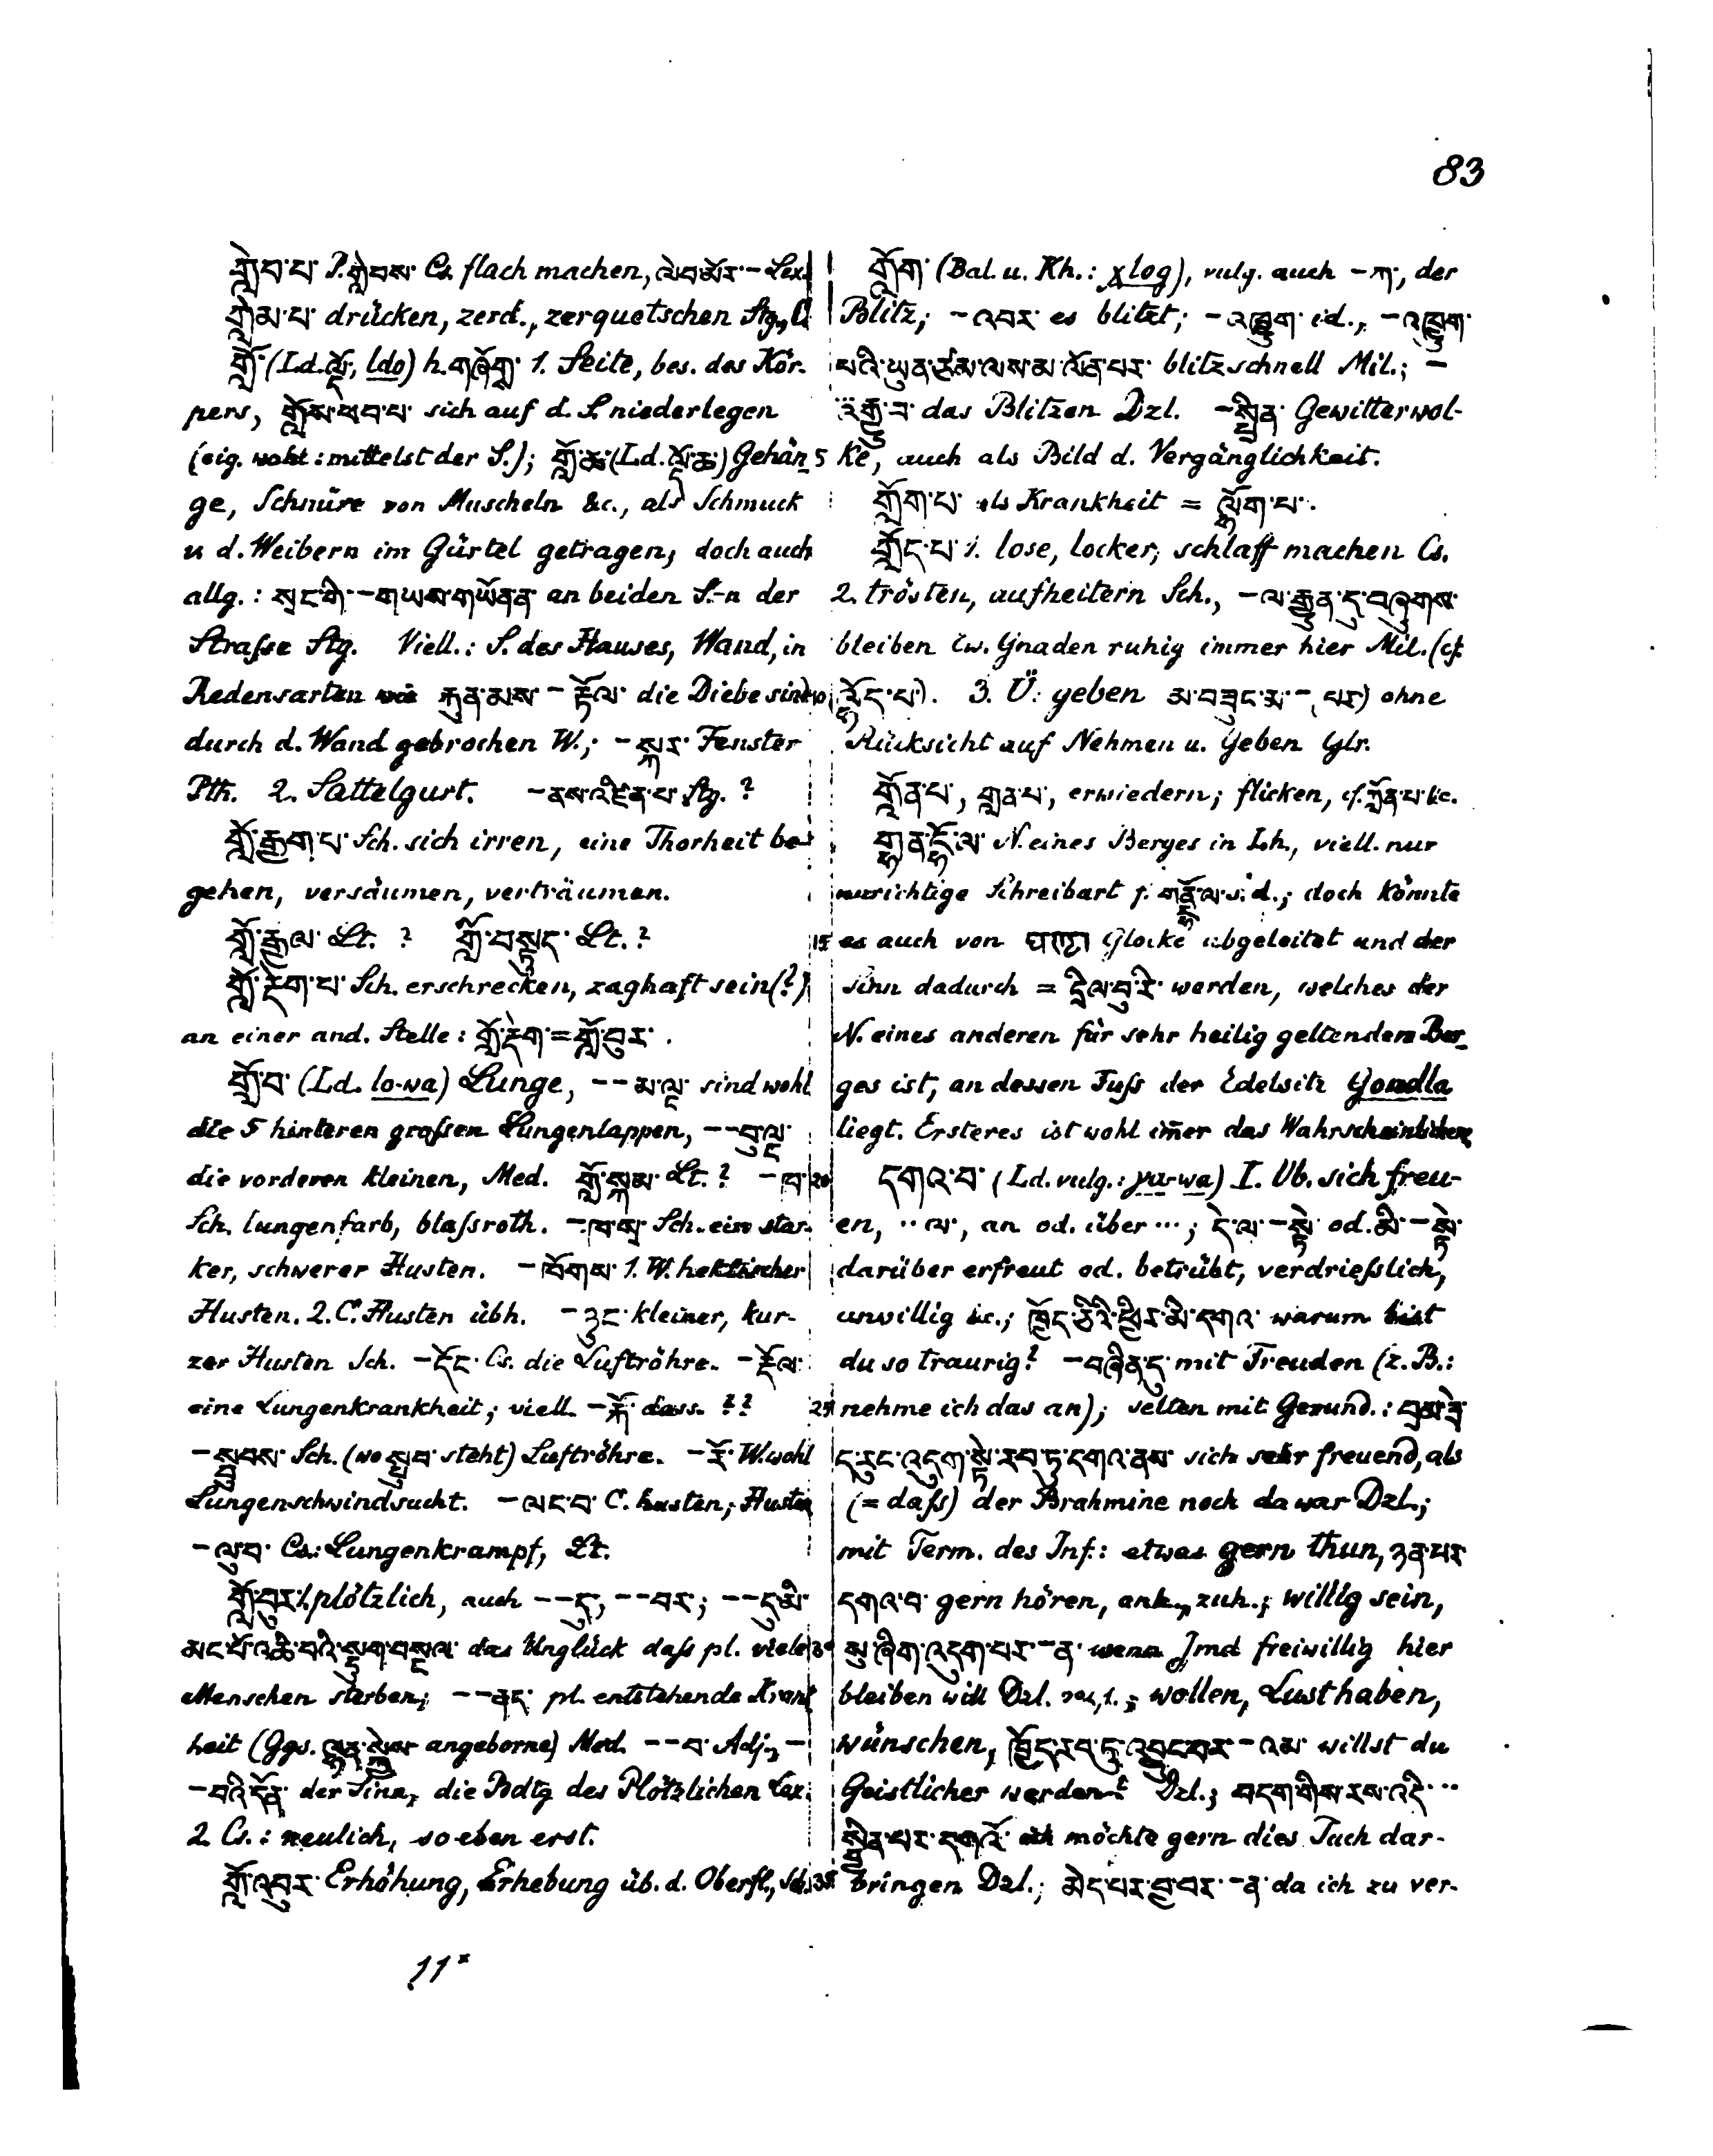 83
གླེབ་པ་ P. གླེབས་ Cs. flach machen, ལེབ་མོར་ – Lex.
གློམ་པ་ drücken, zerd., zerquetschen Stg., C.
གློ་ (Ld. ལྡོ་, ldo) h. གཞོགས་ 1. Seite, bes. des Kör-
pers, གློས་ཕབ་པ་ sich auf d. S. niederlegen
(eig. wohl: mittelst der S.); གློ་ཆ་ (Ld. ལྡོ་ཆ་) Gehän-
ge, Schnüre von Muscheln &c., als Schmuck
u d. Weibern im Gürtel getragen, doch auch
allg.: སྲང་གི་ – གཡས་གཡོན་ན་ an beiden S.-n der
Strasse Stg. Viell.: S. des Hauses, Wand, in
Redensarten wie རྐུན་མས་ – རྟོལ་ die Diebe sind
durch d. Wand gebrochen W.; – སྐར་ Fenster
Pth. 2. Sattelgurt. – ནས་འཛིན་པ་ Stg. ?
གློ་རྒྱག་པ་ Sch. sich irren, eine Thorheit be-
gehen, versäumen, verträumen.
གློ་རྒྱལ་ Lt. ? གློ་བསྟུད་ Lt. ?
གློ་རྡེག་པ་ Sch. erschrecken, zaghaft sein (?)
an einer and. Stelle: གློ་རྡེག་ = གློ་བུར་.
གློ་བ་ (Ld. lo-wa) Lunge, – – མ་ལྔ་ sind wohl
die 5 hinteren grossen Lungenlappen, – – བུ་ལྔ་
die vorderen kleinen, Med. གློ་སྐམ་ Lt. ? – ཁ་
Sch. lungenfarb, blassroth. – ཁ་ས་ Sch. ein star-
ker, schwerer Husten. – ཁོགས་ 1. W. hektischer
Husten. 2. C. Husten übh. – ཅུང་ kleiner, kur-
zer Husten Sch. – དོང་ Cs. die Luftröhre. – རྡོལ་
eine Lungenkrankheit; viell. – རྐོ་ dass. ??
– སྦུབས་ Sch. (wo སྦུབ་ steht) Luftröhre. – རོ་ W. wohl
Lungenschwindsucht. – ལང་བ་ C. husten; Husten
– ལུབ་ Cs.: Lungenkrampf, Lt.
གློ་བུར་ 1. plötzlich, auch – – དུ, – – བར; – – དུ་མི་
མང་པོ་འཆི་བའི་སྡུག་བསྔལ་ das Unglück dass pl. viele
Menschen sterben; – – ནད་ pl. entstehende Krank
heit (Ggs. ལྷན་སྐྱེས་ angeborne) Med. – – བ་ Adj., –
– བའི་དོན་ der Sinn, die Bdtg des Plötzlichen Lex.
2. Cs.: neulich, so eben erst.
གློ་འབུར་ Erhöhung, Erhebung üb. d. Oberfl., Sch.
གློག་ (Bal. u. Kh.: χlog), vulg. auch – ཀ་, der
Blitz; – འབར་ es blitzt; – འཁྱུག་ id., – འཁྱུག་
པའི་ཡུན་ཙམ་ལས་མ་ལོན་པར་ blitzschnell Mil.; –
འགྱུ་བ་ das Blitzen Dzl. – སྤྲིན་ Gewitterwol-
5 ke, auch als Bild d. Vergänglichkeit.
གློག་པ་ als Krankheit = ལྷོག་པ་.
གློད་པ་ 1. lose, locker, schlaff machen Cs.
2. trösten, aufheitern Sch., – ལ་རྒྱུན་དུ་བཞུགས་
bleiben Ew. Gnaden ruhig immer hier Mil. (cf.
10 ལྷོད་པ་). 3. Ü: geben མ་བཟུང་མ་ – (པར) ohne
Rücksicht auf Nehmen u. Geben Glr.
གློན་པ་, གླན་པ་, erwiedern; flicken, cf. ཀློན་པ་ &c.
གྷན་དྷོ་ལ་ N. eines Berges in Lh., viell. nur
unrichtige Schreibart f. གནྡྷོ་ལ་ s. d.; doch könnte
15 es auch von घण्टा Glocke abgeleitet und der
Sinn dadurch = དྲིལ་བུ་རི་ werden, welches der
N. eines anderen für sehr heilig geltenden Ber-
ges ist, an dessen Fuss der Edelsitz Gondla
liegt. Ersteres ist wohl im̄er das Wahrscheinlichere
20 དགའ་བ་ (Ld. vulg.: γa-wa) I. Vb. sich freu-
en, ·· ལ་, an od. über ···; དེ་ལ་ – སྟེ་ od. མི་ – སྟེ་
darüber erfreut od. betrübt, verdriesslich,
unwillig &c.; ཁྱོད་ཅིའི་ཕྱིར་མི་དགའ་ warum bist
du so traurig? – བཞིན་དུ mit Freuden (z. B.:
25 nehme ich das an); selten mit Gerund.: བྲམ་ཟེ་
ད་རུང་འདུག་སྟེ་རབ་ཏུ་དགའ་ནས་ sich sehr freuend, als
(= dass) der Brahmine noch da war Dzl.;
mit Term. des Inf.: etwas gern thun, ཉན་པར་
དགའ་བ་ gern hören, anh., zuh.; willig sein,
30 སུ་ཞིག་འདུག་པར་ – ན་ wenn Jmd freiwillig hier
bleiben will Dzl. ; wollen, Lust haben,
wünschen, ཁྱོད་རབ་ཏུ་འབྱུང་བར་ – འམ་ willst du
Geistlicher werden? Dzl.; བདག་གིས་རས་འདི་ ··
སྦྱིན་པར་དགའོ་ ich möchte gern dies Tuch dar-
35 bringen Dzl.; མེད་པར་བྱ་བར་ – ན་ da ich zu ver-
11*